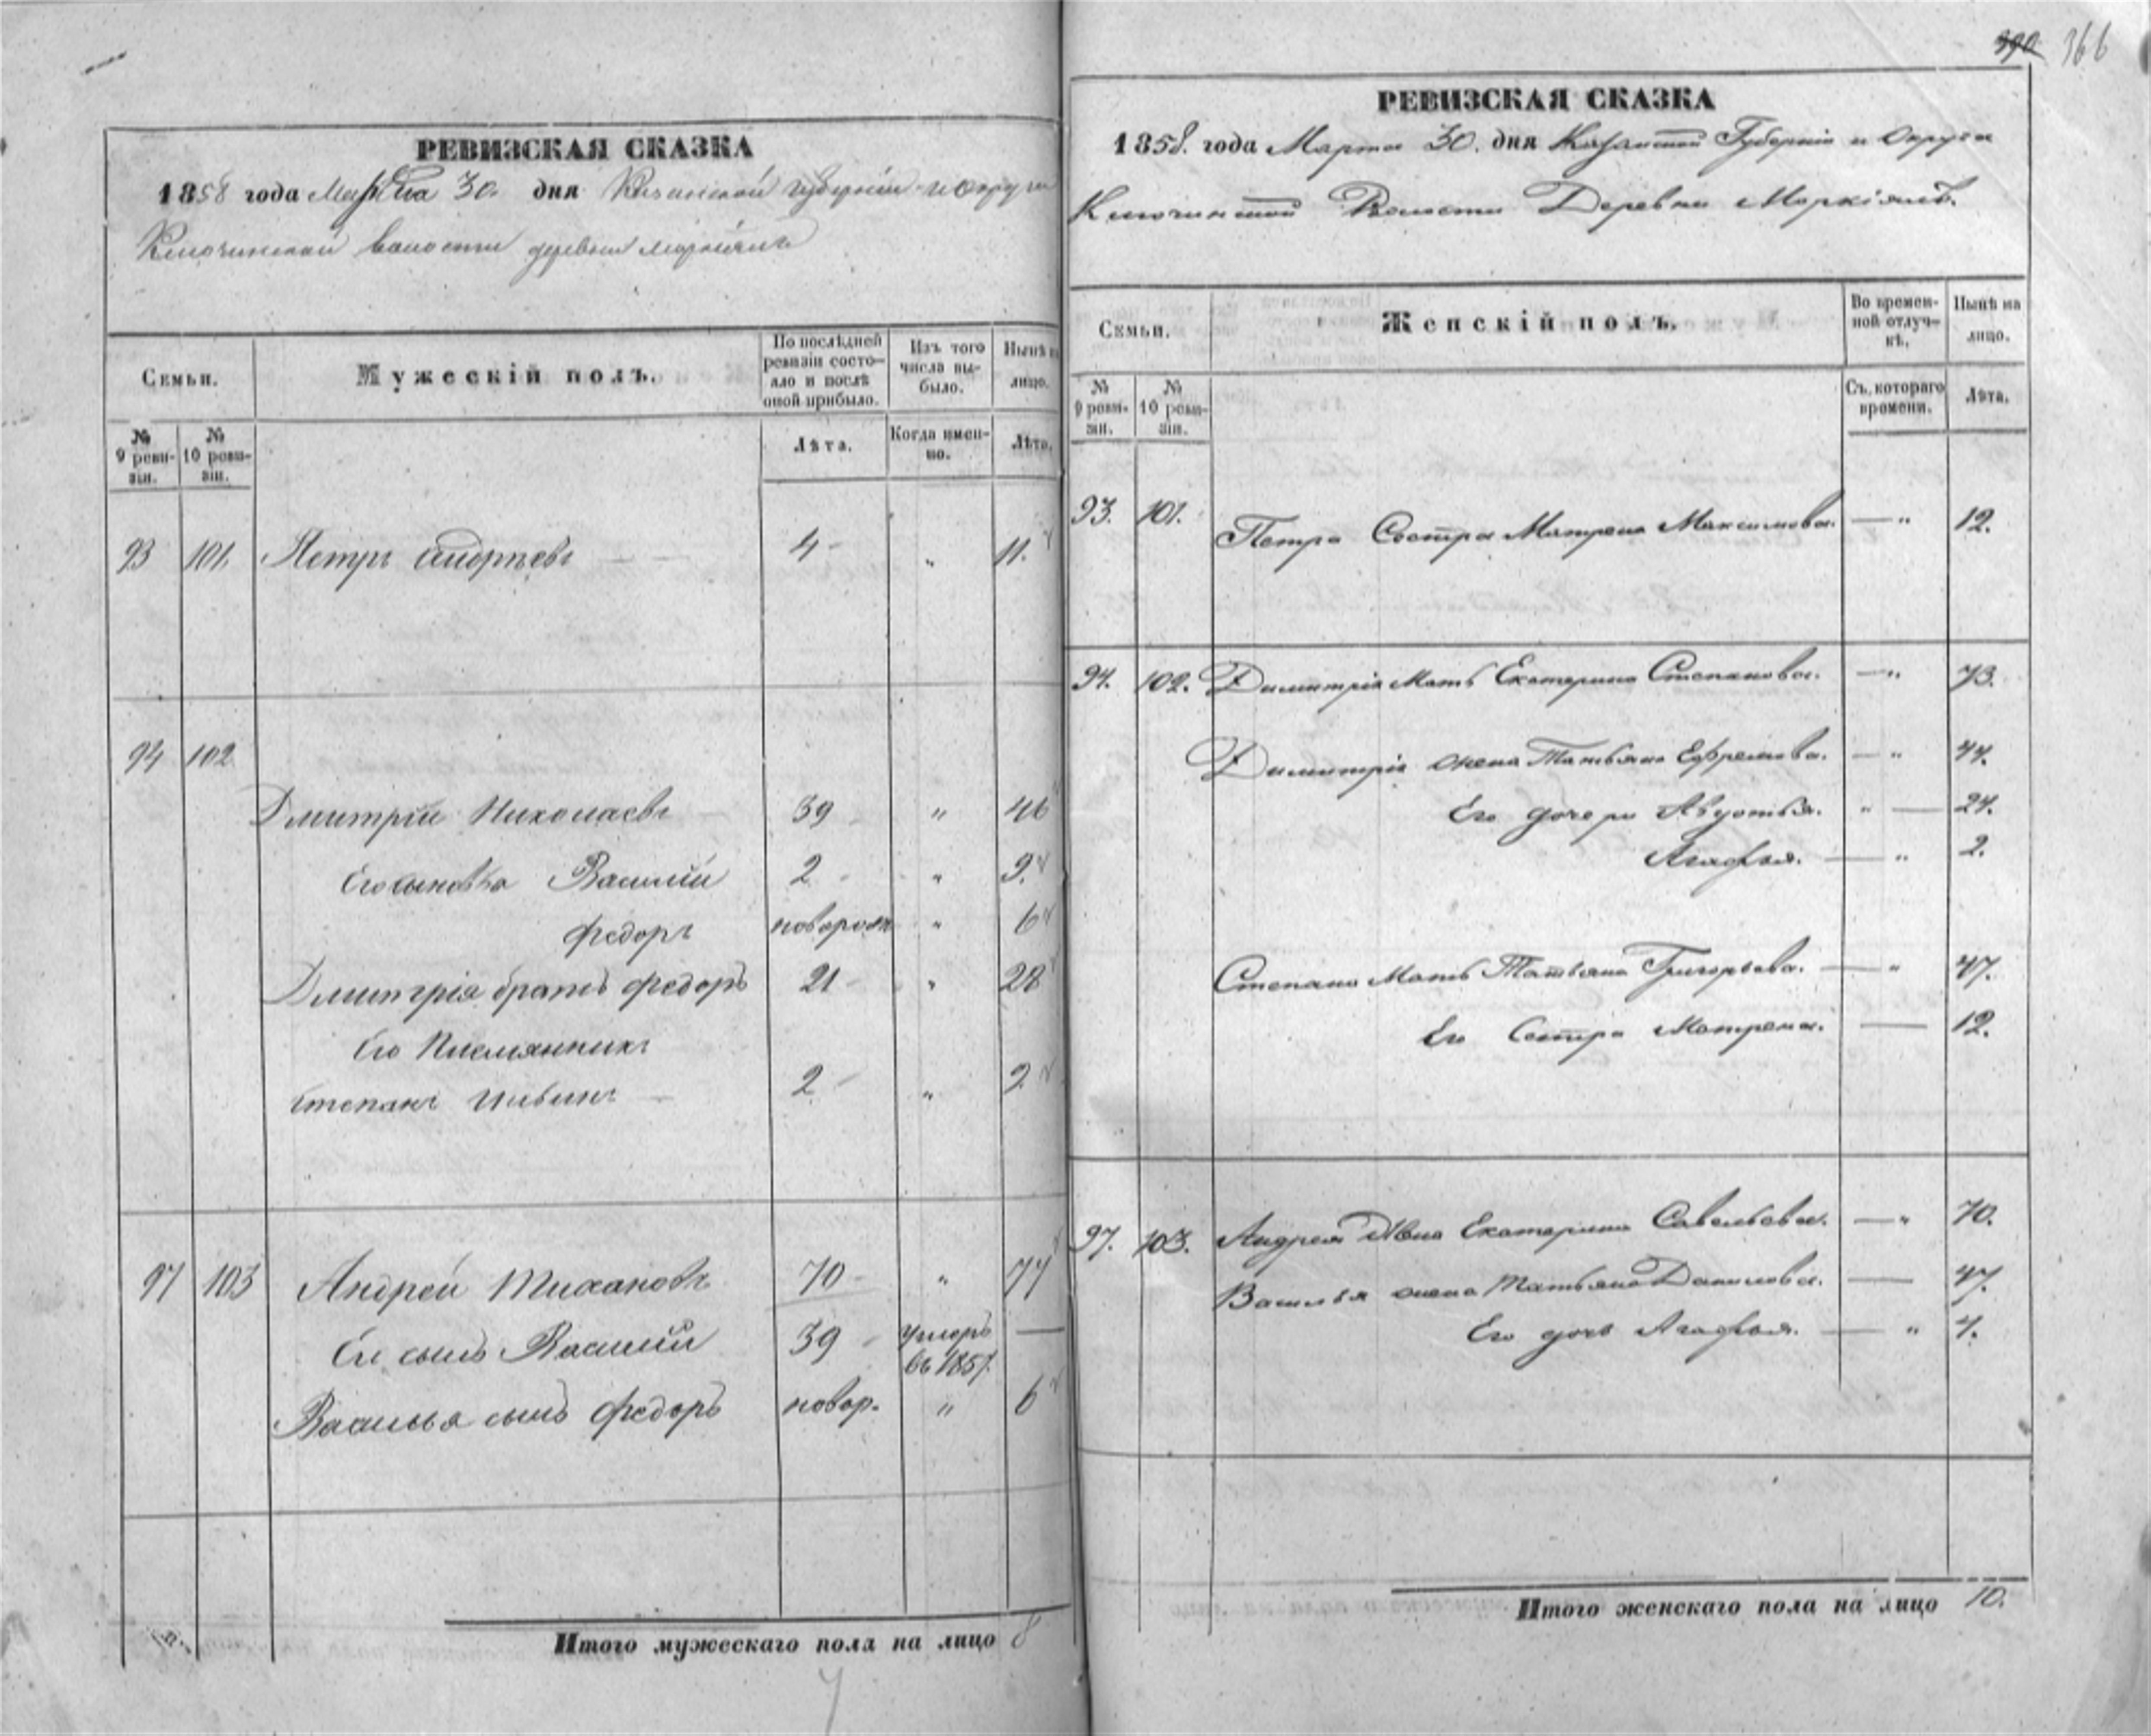 РЕВИЗСКАЯ СКАЗКА
1858 года Марта 30. дня Казанской губернiи и округи
Ключинской волости деревни Моркiялъ
Семьи.
Мужескiй полъ.
По послѣдней ревизiи состо-
яло и послѣ оной прибыло.
Изъ того числа вы-
было.
Нынѣ на лицо.
№ 9 реви-
зiи.
№ 10 реви-
зiи.
Лѣта.
Когда имен-
но.
Лѣта.
93 101. Петръ Андреевъ 4 " 11.
94 102
Дмитрiй Николаевъ 39 " 46
Его сыновья Василiй 2 " 9.
Федоръ новорож " 6
Дмитрiя братъ Федоръ 21 " 28
Его Племянникъ
Степанъ 2 " 9
97 103 Андрей 70 " 77
Его сынъ Василiй 39 умеръ —
въ 1857.
Василья сынъ Федоръ новор. " 6
Итого мужескаго пола на лицо 8
7
390 366
РЕВИЗСКАЯ СКАЗКА
1858. года Марта 30. дня Казанской Губернiи и округи
Ключинской Волости Деревни Моркiялъ.
Семьи.
Женскiй полъ.
Во времен-
ной отлуч-
кѣ.
Нынѣ на лицо.
№ 9 реви-
зiи.
№ 10 реви-
зiи.
Съ котораго времени.
Лѣта.
93. 101. Петра Сестра Матрена Максимова. — " 12.
94. 102. Димитрiя Мать Екатерина Степанова. — " 73.
Димитрiя жена Татьяна Ефремова. — " 44.
Его дочери Авдотья. " — 24.
Агафья. — " 2.
Степана Мать Татьяна Григорьева. — " 47.
Его Сестра Матрена. — 12.
97. 103. Андрея Жена Екатерина Савельева. — " 70.
Василья жена Татьяна Данилова. — 47.
Его дочь Агафья. — " 4.
Итого женскаго пола на лицо 10.